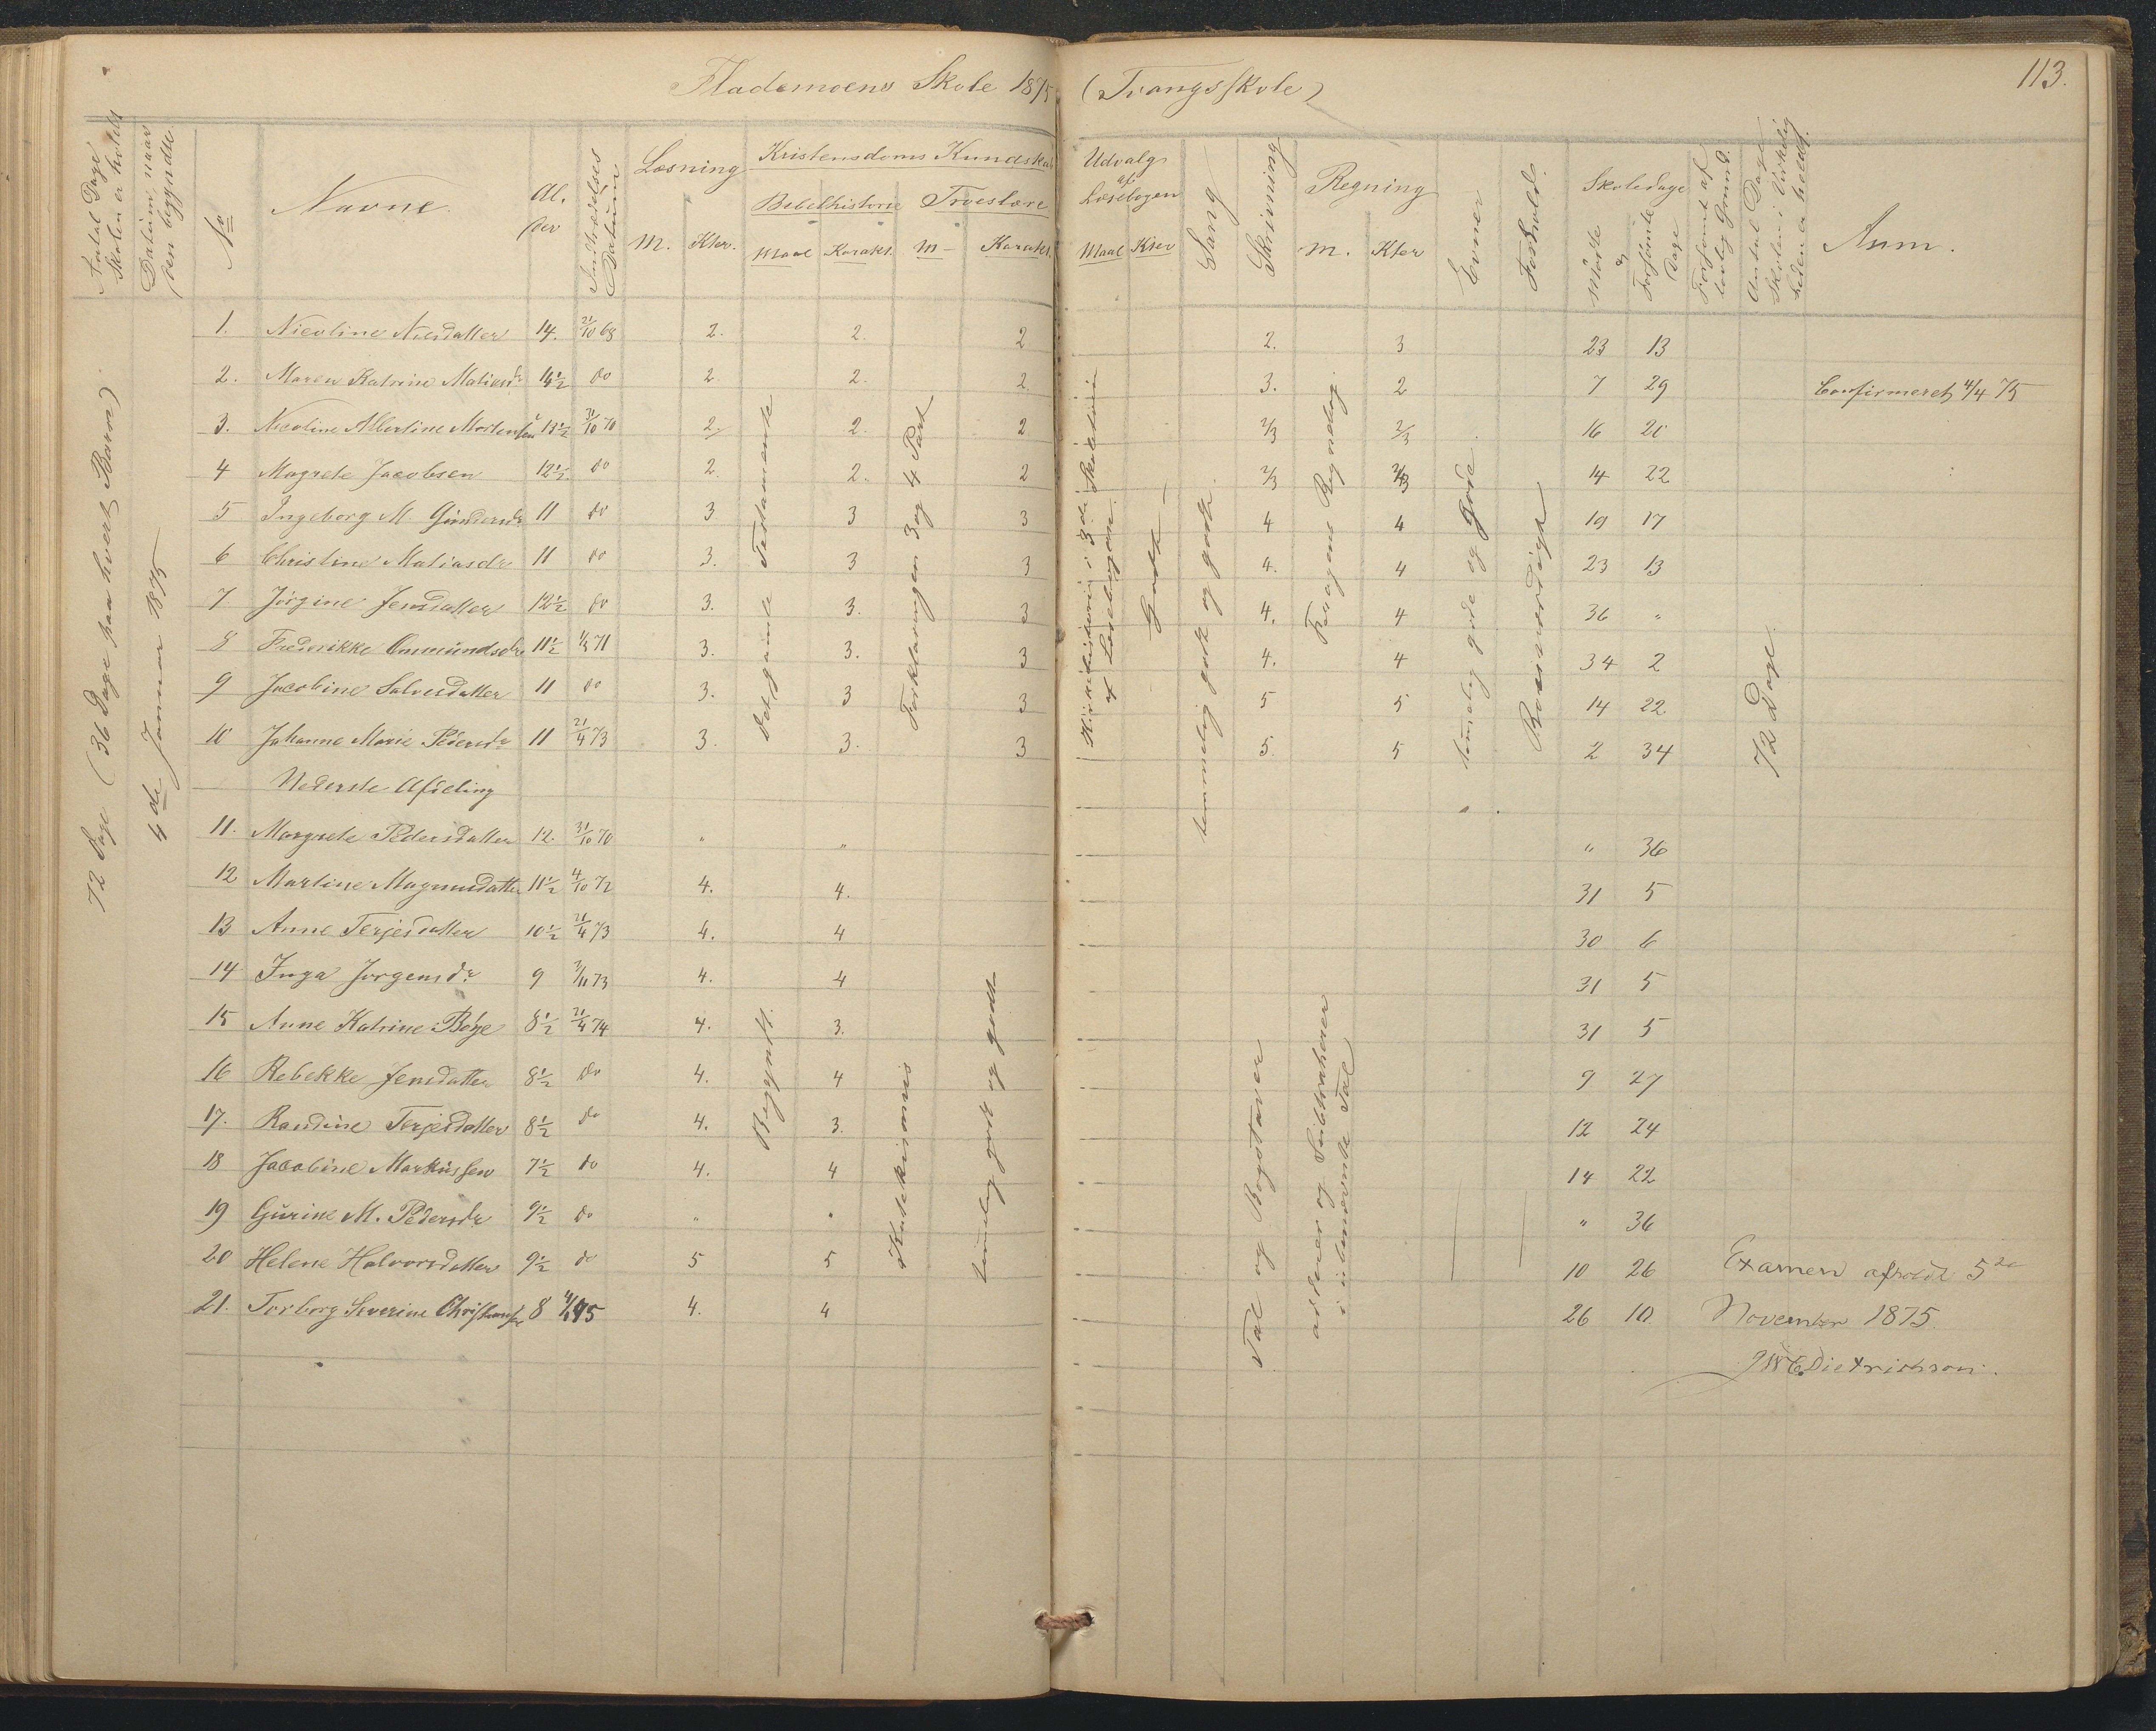 Flademoens Skole 1875 (Tvangsskole)
113.
Antal Dage Skolen er holdt
Datum, naar den begyndte
No
Navne.
Al. der
Indtrædelses Datum
Læsning
M. Kter.
Kristendoms Kundskab
Bibelhistorie Troeslære
Maal Karakt. M- Karakt.
Udvalg af Læsebogen
Maal Kter
Sang
Skrivning
Regning
M. Kter
Evner
Forhold.
Skoledage
Mødte & Forsømte Dage
Forsømt af lovlig Grund.
Antal Dage Skolen i Virkelig heden er holdt.
Anm.
72 Dage (36 Dage paa hvert Barn)
4de Januar 1875
1. Nicoline Nilsdatter 14. 21/10 68 2. 2. 2 2. 3 23 13
2. Maren Katrine Matiasdr 14½ do 2. 2. 2. 3. 2 7 29 Confirmeret 4/4 75
3. Nicoline Albertine Mortensen 13½ 31/10 70 2. 2. 2 2/3 2/3 16 20
4 Magrete Jacobsen 12½ do 2. 2. 2 2/3 2/3 14 22
5 Ingeborg M. Gundersdr 11 do 3 3 3 4 4 19 17
6 Christine Matiasdr 11 do 3. 3 3 4. 4 23 13
7 Jörgine Jensdatter 12½ do 3. 3. 3 4. 4 36 "
8 Frederikke Omundsdr 11½ 1/5 71 3. 3. 3 4. 4 34 2
9 Jacobine Salvesdatter 11 do 3. 3 3 5 5 14 22
10 Johanne Marie Pedersdr 11 21/4 73 3. 3. 3 5. 5 2 34
Det gamle Testamente
Forklaringen 3 og 4 Part
Kirkehistorie i 3die Skoletrin af Læsebogen.
Godt
temmelig godt og godt.
Forogens Regnebog.
temmelig gode og gode
Rosværdigt
72 Dage.
Nederste Afdeling
11. Margrete Pedersdatter 12. 31/10 70 " " " 36
12 Martine Magnusdatter 11½ 4/10 72 4. 4. 31 5
13 Anne Terjesdatter 10½ 21/4 73 4. 4 30 6
14 Inga Jørgensdr 9 3/11 73 4. 4 31 5
15 Anne Katrine Bøhje 8½ 21/4 74 4. 3. 31 5
16 Rebekke Jensdatter 8½ do 4. 4 9 27
17. Randine Terjesdatter 8½ do 4. 3. 12 24
18 Jacobine Markussen 7½ do 4. 4 14 22
19 Gurine M. Pedersdr 9½ do " " " 36
20 Helene Halvorsdatter 9½ do 5 5 10 26
21. Torborg Severine Christensen 8 75 4. 4 26 10
Begyndt.
Katekismus
temelig godt og godt
Tal og Bogstaver
adderer og Subtraherer i ubenævnte Tal
Examen afholdt 5te
November 1875.
JWC Dietrichson.